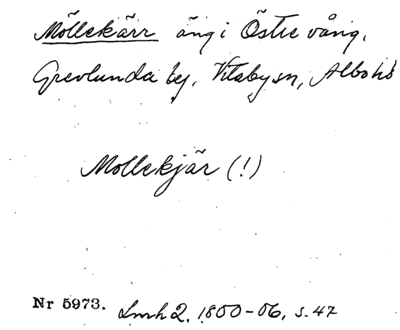 Möllekärr äng i Östre vång,
Grevlunda by, Vitaby sn, Albo hd
Mollekjär (!)
Nr 5973. Lmh 2. 1800-06, s. 47